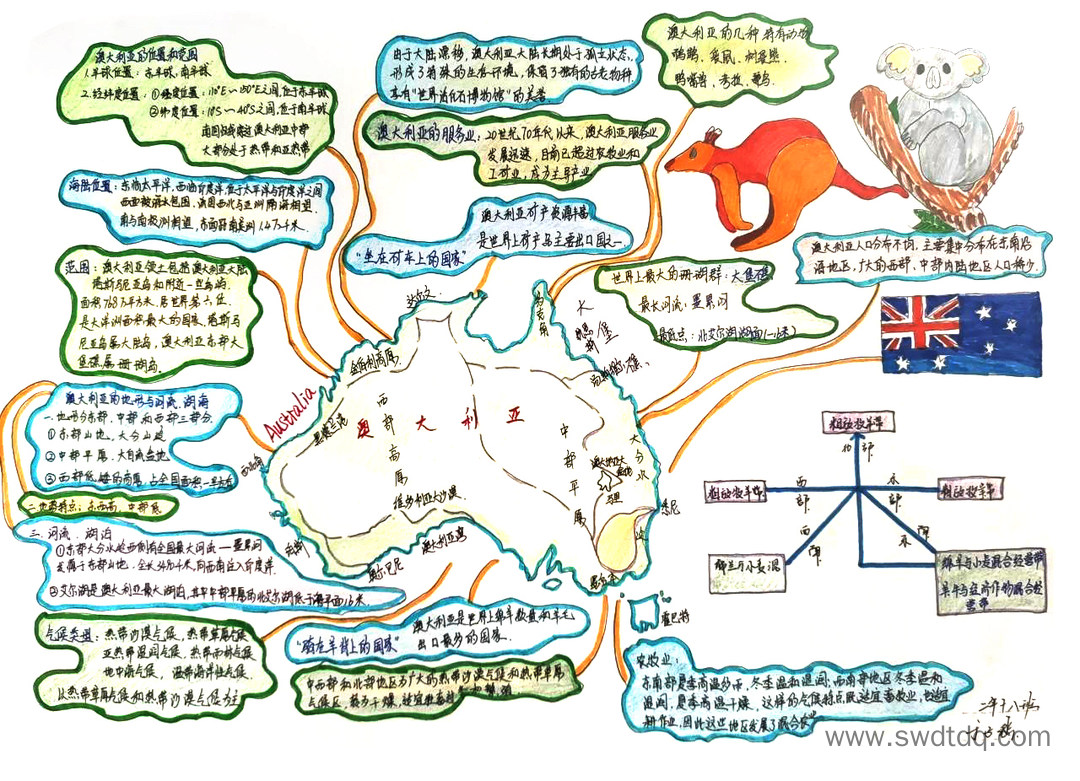 澳大利亚的位置和范围
1.半球位置:东半球,南半球
2.经纬度位置:①经度位置:110°E~150°E之间,位于东半球
②纬度位置:10°S~40°S之间,位于南半球
南回归线穿过澳大利亚中部
大部分处于热带和亚热带
海陆位置:东临太平洋,西临印度洋,位于太平洋与印度洋之间
四面被海水包围,
范围:澳大利亚领土包括澳大利亚大陆
塔斯马尼亚岛和附近一些岛屿
面积768万平方米,居世界第六位
是大洋洲面积最大的国家,塔斯马
尼亚岛最大岛屿,澳大利亚东部大
堡礁属珊瑚岛
澳大利亚的地形与河流、湖海
一.地形分东部、中部和西部三部分
①东部山地,大分山岭
②中部平原,大自流盆地
③西部低矮的高原,占全国面积一半左右
二.地势特点:东西高,中部低
三.河流、湖泊
①东部大分水岭西侧有全国最大河流——墨累河
发源于东部山地,
②艾尔湖是澳大利亚最大湖泊,
气候类型:热带沙漠气候、热带草原气候
亚热带湿润气候、热带雨林气候
地中海气候、温带海洋性气候
以热带草原气候和热带沙漠气候为主
由于大陆漂移,澳大利亚大陆长期处于孤立状态,
形成了特殊的生态环境,保留了独有的古老物种
享有"世界活化石博物馆"的美誉
澳大利亚的服务业:20世纪70年代以来,澳大利亚服务业
发展迅速,目前已超过农牧业和
工矿业,成为主导产业
澳大利亚矿产资源丰富
是世界上矿产品主要出口国之一
"坐在矿车上的国家"
澳大利亚的几种特有动物
鸭嘴兽、考拉、
世界上最大的珊瑚群:大堡礁
最长河流:墨累河
最低点:北艾尔湖湖面(-16米)
澳大利亚人口分布不均,主要集中分布在东南沿
海地区,广大的西部、中部内陆地区人口稀少
Australia
澳大利亚
西部高原
中部平原
大分水岭
维多利亚大沙漠
金伯利高原
达尔文
约克角
大堡礁
悉尼
墨尔本
霍巴特
奥尔巴尼
澳大利亚湾
粗放牧羊带
北部
粗放牧羊带
西部
东部
粗放牧羊带
西南
东南
"骑在羊背上的国家"
澳大利亚是世界上绵羊数量和羊毛
出口最多的国家
中西部和北部地区为广大的热带沙漠气候和热带草原
气候区,较为干燥,适宜牧畜牧
绵羊与小麦混合经营带
农牧业:
东南部夏季高温多雨,冬季温和湿润;西南部地区冬季温和
湿润,夏季高温干燥,这样的气候特点既适宜畜牧业,也适宜
耕作业,因此这些地区发展了混合农业
www.swdtdq.com